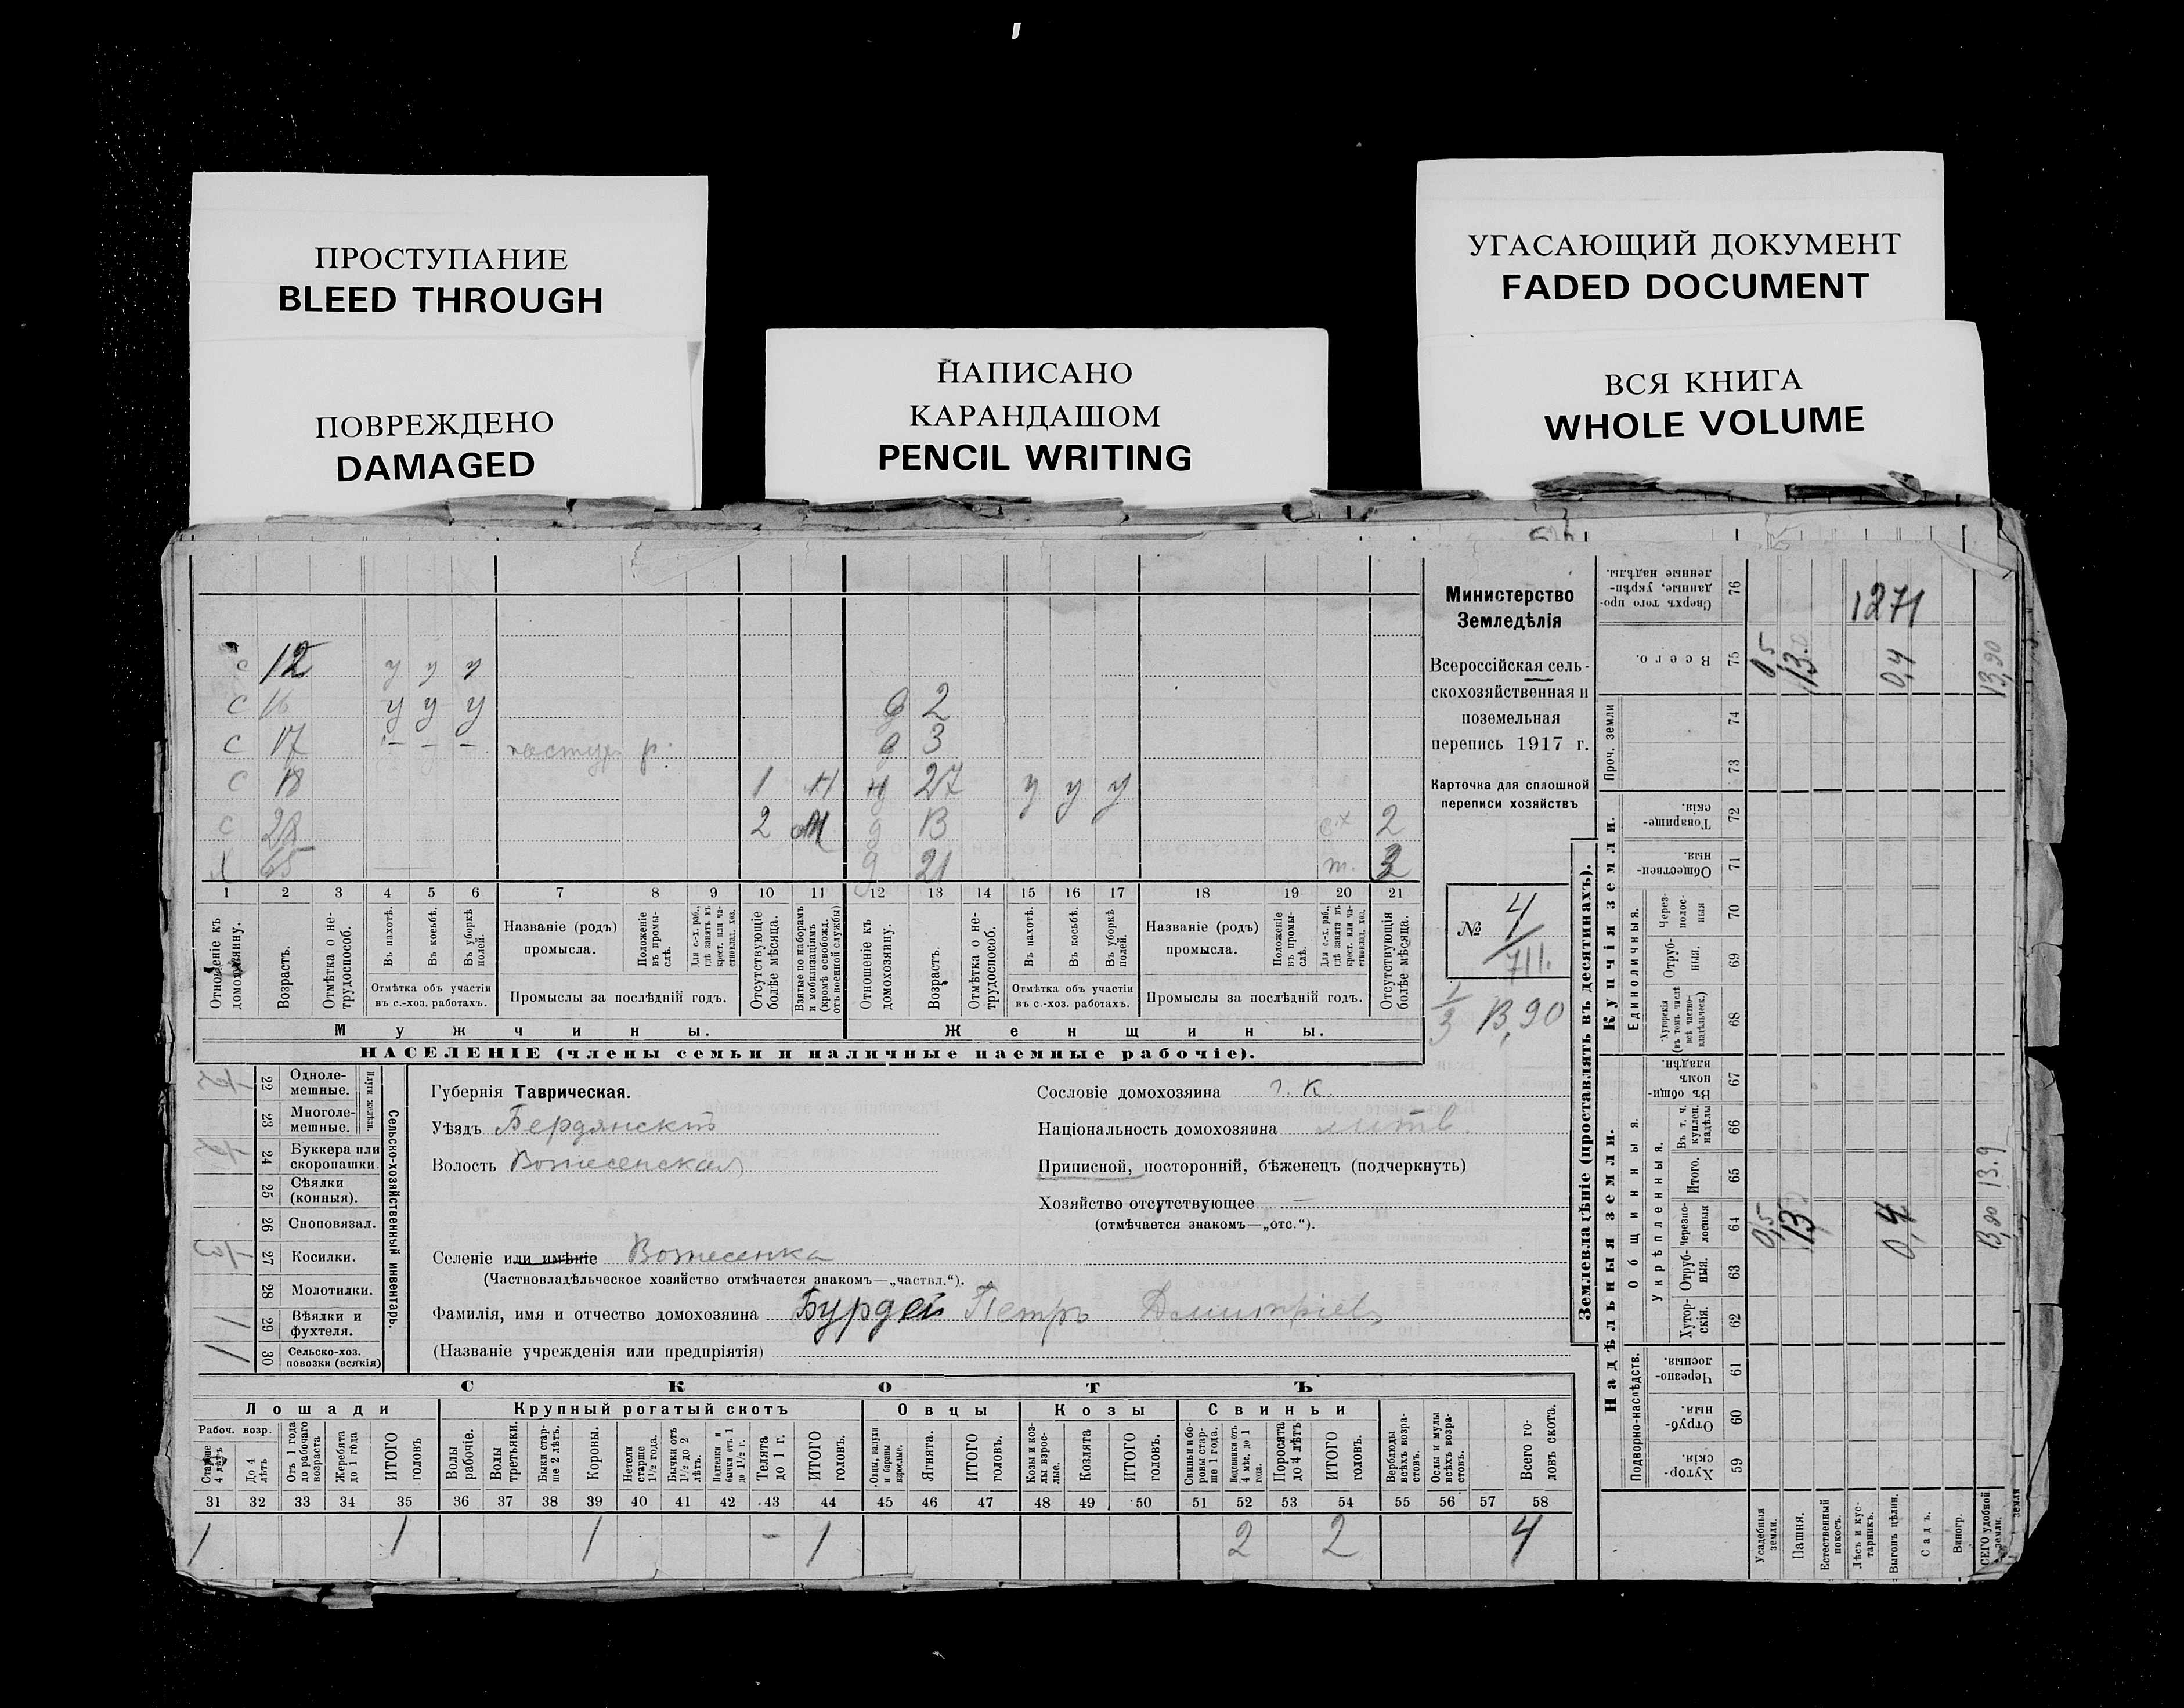 ПРОСТУПАНИЕ
BLEED THROUGH
ПОВРЕЖДЕНО
DAMAGED
НАПИСАНО
КАРАНДАШОМ
PENCIL WRITING
УГАСАЮЩИЙ ДОКУМЕНТ
FADED DOCUMENT
ВСЯ КНИГА
WHOLE VOLUME
с 12 у у у
с 16 у у у д 2
с 17 – – – р. д 3
с 18 1 Н 27 у у у
с 28 2 д 13 2
х 65 д 21 т. 3
1 2 3 4 5 6 7 8 9 10 11 12 13 14 15 16 17 18 19 20 21
Отношеніе къ домохозяину.
Возрастъ.
Отмѣтка о нетрудоспособ.
Въ пахотѣ.
Въ косьбѣ.
Въ уборкѣ полей.
Отмѣтка объ участіи
въ с.-хоз. работахъ.
Названіе (родъ)
промысла.
Положеніе въ промыслѣ.
Для с.-х. раб., гдѣ занятъ въ крест. или частновлад. хоз.
Промыслы за послѣдній годъ.
Отсутствующіе болѣе мѣсяца.
Взятые по наборамъ и мобилизаціямъ (кромѣ освобожд. отъ военной службы)
Отношеніе къ домохозяину.
Возрастъ.
Отмѣтка о нетрудоспособ.
Въ пахотѣ.
Въ косьбѣ.
Въ уборкѣ полей.
Отмѣтка объ участіи
въ с.-хоз. работахъ.
Названіе (родъ)
промысла.
Положеніе въ промыслѣ.
Для с.-х. раб., гдѣ занята въ крест. или частновлад. хоз.
Промыслы за послѣдній годъ.
Отсутствующія болѣе мѣсяца.
Мужчины.
Женщины.
НАСЕЛЕНІЕ (члены семьи и наличные наемные рабочіе).
Министерство
Земледѣлія
Всероссійская сель-
скохозяйственная и
поземельная
перепись 1917 г.
Карточка для сплошной
переписи хозяйствъ
№ 4
711.
1/3 13,90
22 Одноле-
мешные.
23 Многоле-
мешные.
Плуги желѣзн.
24 Буккера или
скоропашки.
25 Сѣялки
(конныя).
26 Сноповязал.
27 Косилки.
28 Молотилки.
1 29 Вѣялки и
фухтеля.
1 30 Сельско-хоз.
повозки (всякія)
Сельско-хозяйственный инвентарь.
Губернія Таврическая.
Уѣздъ Бердянскій
Волость Вознесенская
Селеніе или имѣніе Вознесенка
(Частновладѣльческое хозяйство отмѣчается знакомъ—„частвл.“).
Фамилія, имя и отчество домохозяина Бурдей Петръ Дмитріев
(Названіе учрежденія или предпріятія)
Сословіе домохозяина г. к.
Національность домохозяина
Приписной, посторонній, бѣженецъ (подчеркнуть)
Хозяйство отсутствующее —
(отмѣчается знакомъ—„отс.“).
СКОТЪ
Лошади
Крупный рогатый скотъ
Овцы
Козы
Свиньи
Рабоч. возр.
Старше 4 лѣтъ
До 4 лѣтъ
Отъ 1 года до рабочаго возраста
Жеребята до 1 года
ИТОГО головъ
Волы рабочіе.
Волы третьяки.
Быки старше 2 лѣтъ.
Коровы.
Нетели старше 1½ года.
Бычки отъ 1½ до 2 лѣтъ.
Телята до 1 г.
ИТОГО головъ.
Овцы, валухи и бараны взрослые.
Ягнята.
ИТОГО головъ.
Козы и козлы взрослые.
Козлята
ИТОГО головъ.
Свиньи и боровы старше 1 года.
Поросята до 4 лѣтъ
ИТОГО головъ.
Верблюды всѣхъ возрастовъ.
Ослы и мулы всѣхъ возрастовъ.
Всего головъ скота.
31 32 33 34 35 36 37 38 39 40 41 42 43 44 45 46 47 48 49 50 51 52 53 54 55 56 57 58
1 1 1 – 1 2 2 4
Землевладѣніе (проставлять въ десятинахъ).
Надѣльныя земли.
Купчія земли.
Проч. земли
Сверхъ того проданные, укрѣпленные надѣлы. 76 1271
Всего. 75 0,5 13.0 0,4 13,90
74
73
Товарищескія. 72
Общественныя. 71
Единоличныя.
Черезполосныя 70
Отрубныя. 69
Хуторскія (въ томъ числѣ всѣ частновладѣльческ.) 68
Общинныя.
Въ общинномъ владѣн. 67
Укрѣпленныя.
Въ т. ч. куплен. надѣлы 66
Итого. 65
Черезполосныя 64 0,5 13 0,4 13,90 13.9
Отрубныя. 63
Хуторскія. 62
Подворно-наслѣдств.
Черезполосныя. 61
Отрубныя. 60
Хуторскія. 59
Усадебныя земли.
Пашня.
Естественный покосъ.
Лѣсъ и кустарникъ.
Выгонъ цѣлин.
Садъ.
Виногр.
ВСЕГО удобной земли.